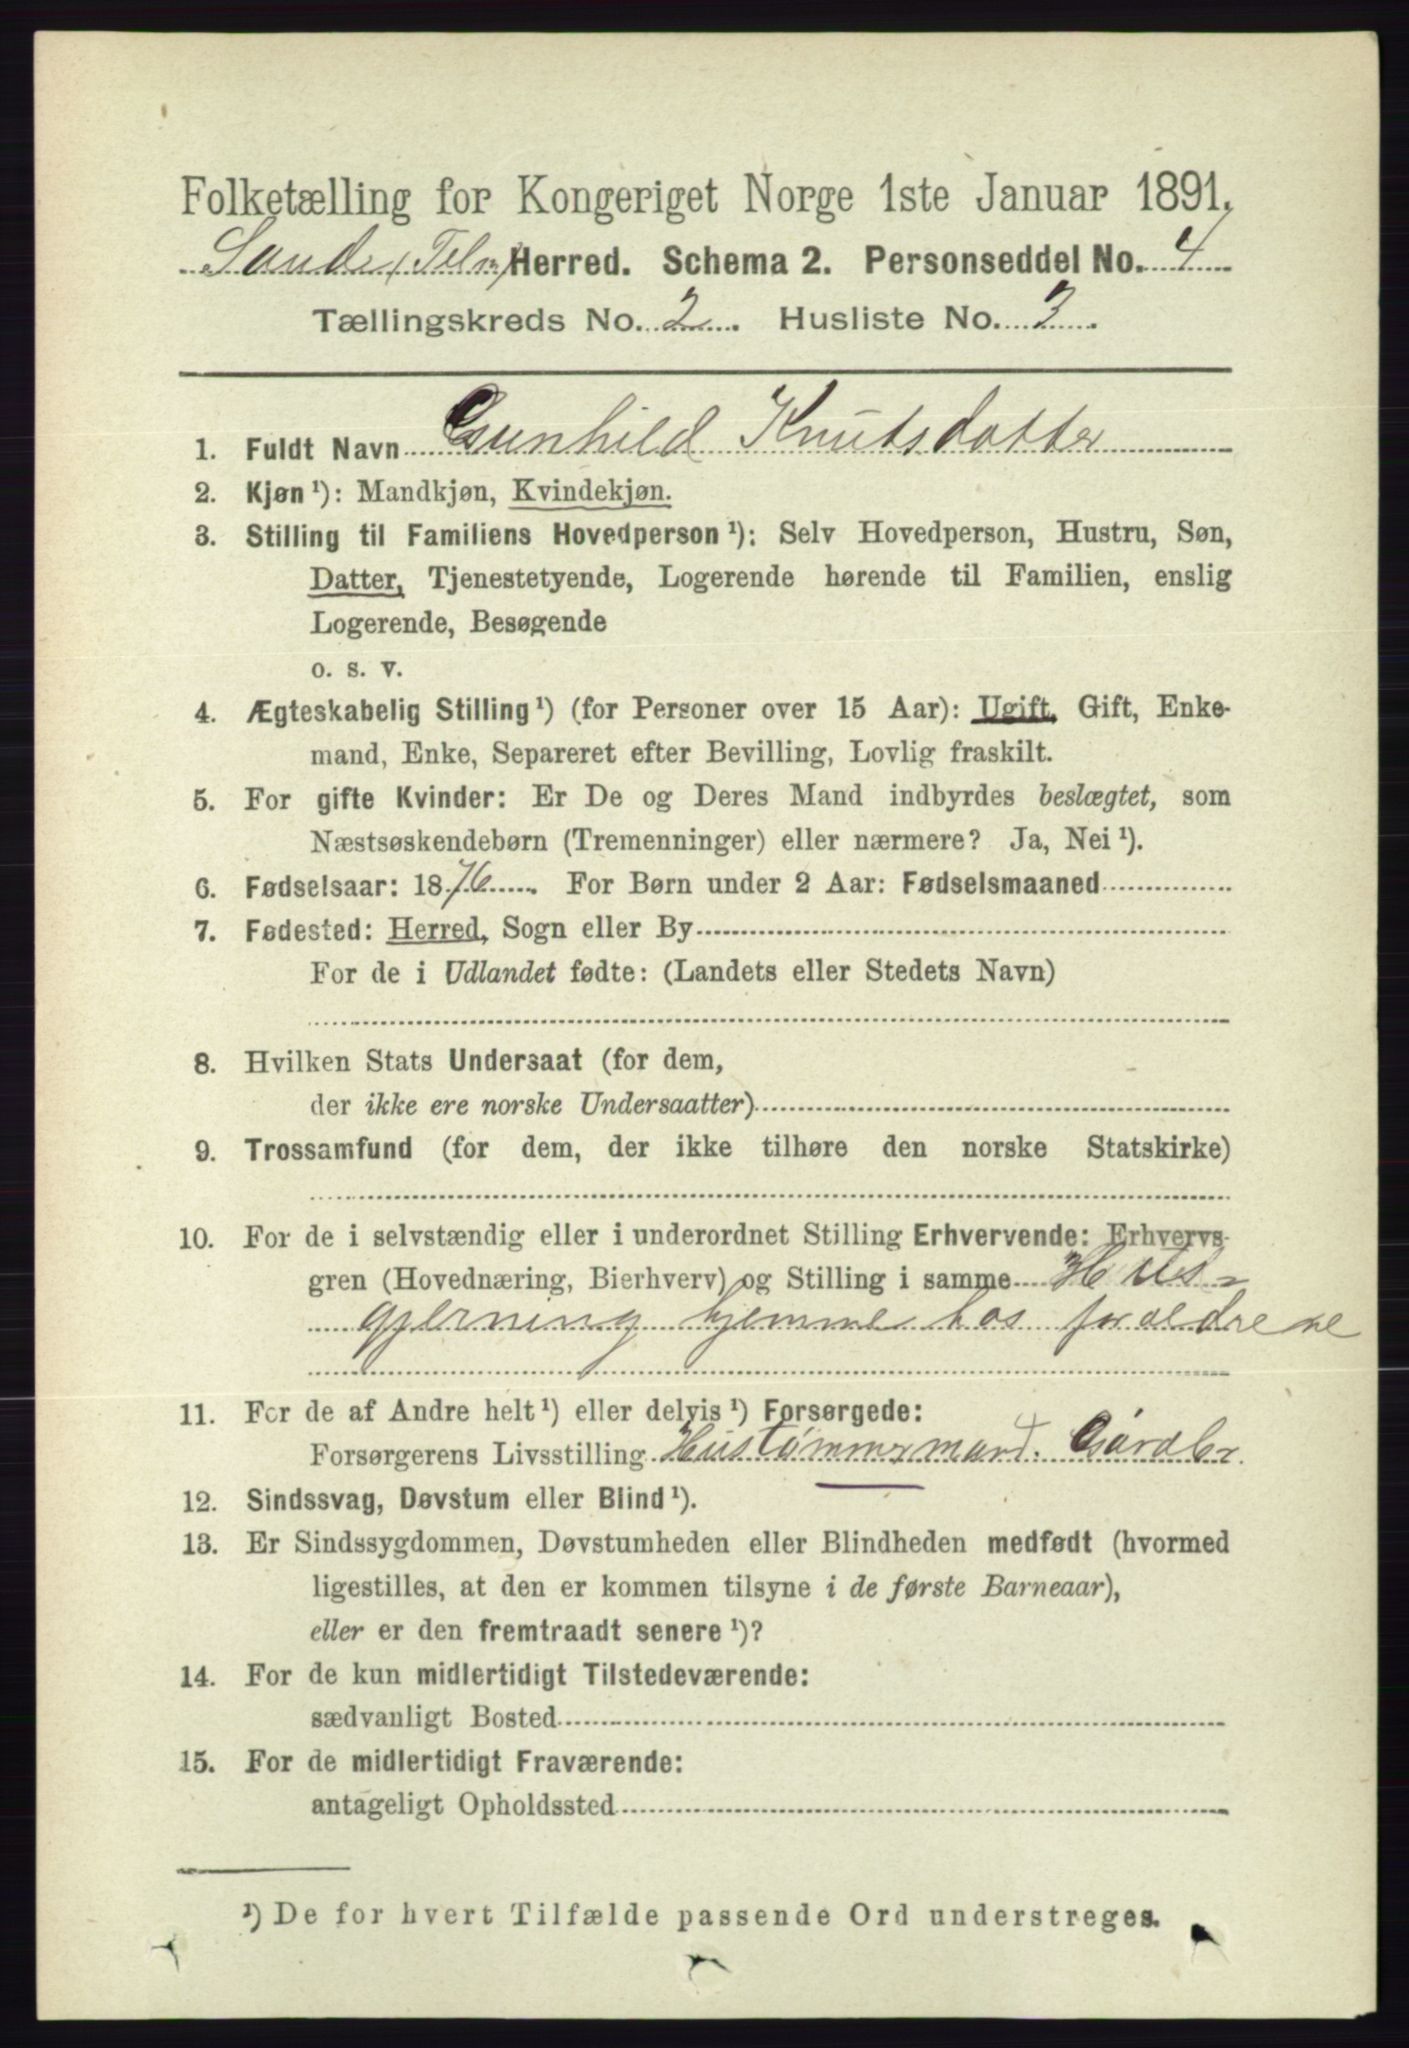 Folketælling for Kongeriget Norge 1ste Januar 1891.
Saude (Telm) Herred. Schema 2. Personseddel No. 4
Tællingskreds No. 2. Husliste No. 3.
1. Fuldt Navn Gunhild Knutsdatter
2. Kjøn ¹): Mandkjøn, Kvindekjøn.
3. Stilling til Familiens Hovedperson ¹): Selv Hovedperson, Hustru, Søn,
Datter, Tjenestetyende, Logerende hørende til Familien, enslig
Logerende, Besøgende
o. s. v.
4. Ægteskabelig Stilling ¹) (for Personer over 15 Aar): Ugift, Gift, Enke-
mand, Enke, Separeret efter Bevilling, Lovlig fraskilt.
5. For gifte Kvinder: Er De og Deres Mand indbyrdes beslægtet, som
Næstsøskendebørn (Tremenninger) eller nærmere? Ja, Nei ¹).
6. Fødselsaar: 1876. For Børn under 2 Aar: Fødselsmaaned
7. Fødested: Herred, Sogn eller By
For de i Udlandet fødte: (Landets eller Stedets Navn)
8. Hvilken Stats Undersaat (for dem,
der ikke ere norske Undersaatter)
9. Trossamfund (for dem, der ikke tilhøre den norske Statskirke)
10. For de i selvstændig eller i underordnet Stilling Erhvervende: Erhvervs-
gren (Hovednæring, Bierhverv) og Stilling i samme Hus-
gjerning hjemme hos forældrene
11. For de af Andre helt ¹) eller delvis ¹) Forsørgede:
Forsørgerens Livsstilling Hustømmermand. Gårdbr.
12. Sindssvag, Døvstum eller Blind ¹).
13. Er Sindssygdommen, Døvstumheden eller Blindheden medfødt (hvormed
ligestilles, at den er kommen tilsyne i de første Barneaar),
eller er den fremtraadt senere ¹)?
14. For de kun midlertidigt Tilstedeværende:
sædvanligt Bosted
15. For de midlertidigt Fraværende:
antageligt Opholdssted
¹) De for hvert Tilfælde passende Ord understreges.